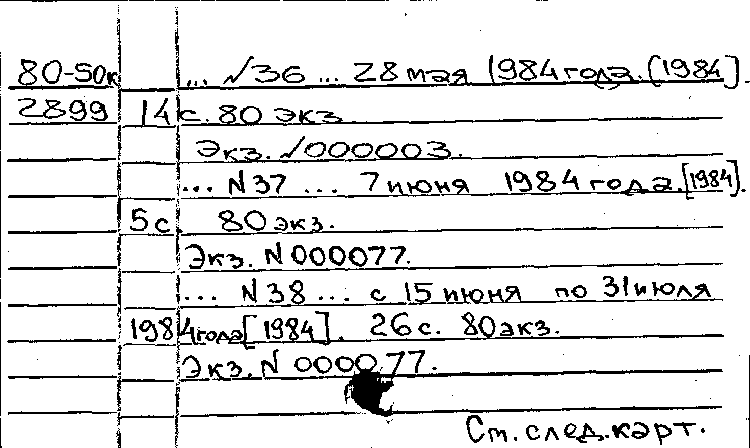 80-50к ... №36 ... 28 мая 1984 года. (1984].
2899 14 с. 80 экз.
Экз. №000003.
... №37 ... 7 июня 1984 года. [1984].
5 с. 80 экз.
Экз. №000077.
... №38 ... с 15 июня по 31 июля
1984 года [1984]. 26 с. 80 экз.
Экз. № 000077.
См. след. карт.